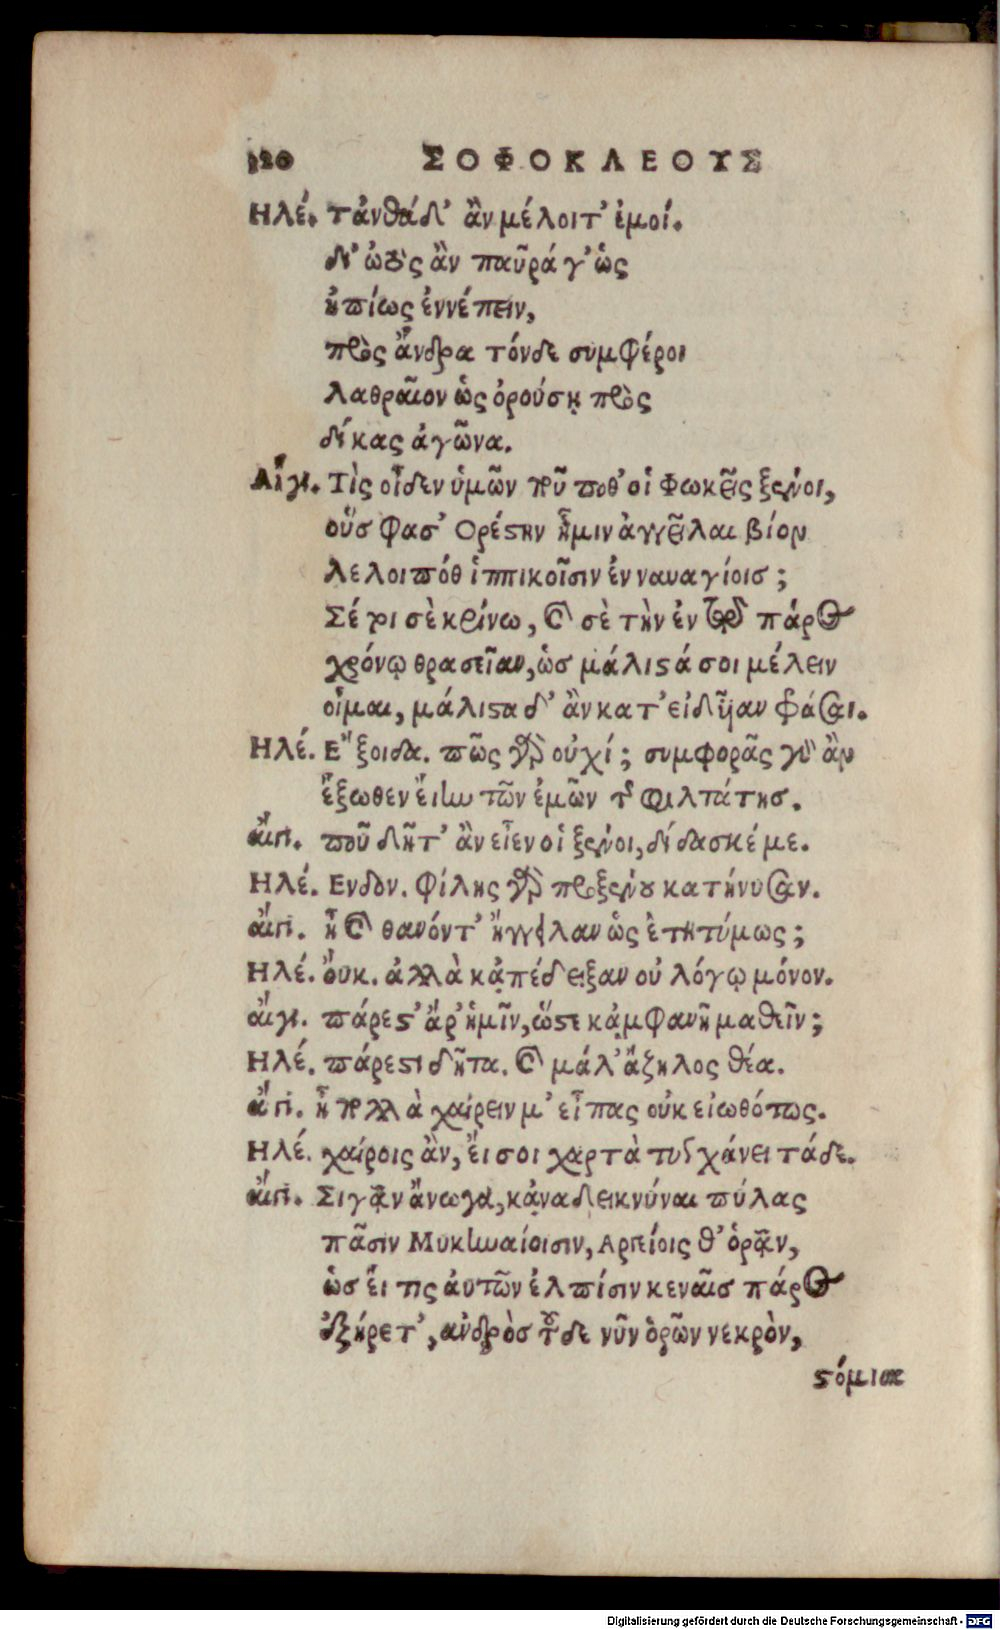 120 ΣΟΦΟΚΛΕΟΥΣ
Ηλέ. τἀνθάδ' ἂν μέλοιτ' ἐμοί.
δι' ὠτὸς ἂν παῦρά γ' ὡς
ἠπίως ἐννέπειν,
πρὸς ἄνδρα τόνδε συμφέροι
λαθραῖον ὡς ὀρούσῃ πρὸς
δίκας ἀγῶνα.
Αἴγι. Τὶς οἶδεν ὑμῶν ποῦ ποθ' οἱ Φωκεῖς ξένοι,
οὕσ φασ' Ορέστην ἧμιν ἀγγεῖλαι βίον
λελοιπόθ ἱππικοῖσιν ἐν ναυαγίοισ;
Σέ τοι σὲ κρίνω, καὶ σὲ τὴν ἐν τῷ πάρος
χρόνῳ θρασεῖαν, ὡσ μάλιστά σοι μέλειν
οἶμαι, μάλιστα δ' ἂν κατ' εἰδῆαν φράσαι.
Ηλέ. Εἔξοιδα. πῶς γὰρ οὐχί; συμφορᾶς γὰρ ἂν
ἔξωθεν εἴην τῶν ἐμῶν τῆς φιλτάτησ.
αἴγι. ποῦ δῆτ' ἂν εἶεν οἱ ξένοι, δίδασκέ με.
Ηλέ. Ενδον. φίλης γὰρ προξένου κατήνυσαν.
αἴγι. ἦ καὶ θανόντ' ἤγγειλαν ὡς ἐτητύμως;
Ηλέ. ὄυκ. ἀλλὰ κἀπέδειξαν οὐ λόγῳ μόνον.
αἴγι. πάρεστ' ἄρ' ἡμῖν, ὥστε κἀμφανῆ μαθεῖν;
Ηλέ. πάρεστι δῆτα. καὶ μάλ' ἄζηλος θέα.
αἴγι. ἦ πολλὰ χαίρειν μ' εἶπας οὐκ εἰωθότως.
Ηλέ. χαίροις ἂν, ἔι σοι χαρτὰ τυγχάνει τάδε.
αἴγι. Σιγᾷν ἄνωγα, κᾀναδεικνύναι πύλας
πᾶσιν Μυκηναίοισιν, Αργείοις θ' ὁρᾷν,
ὡσ ἔι τις ἀυτῶν ἐλπίσιν κεναῖσ πάρος
ἐξήρετ', ανδρὸσ τοῦδε νῦν ὁρῶν νεκρὸν,
στόμια
Digitalisierung gefördert durch die Deutsche Forschungsgemeinschaft - DFG